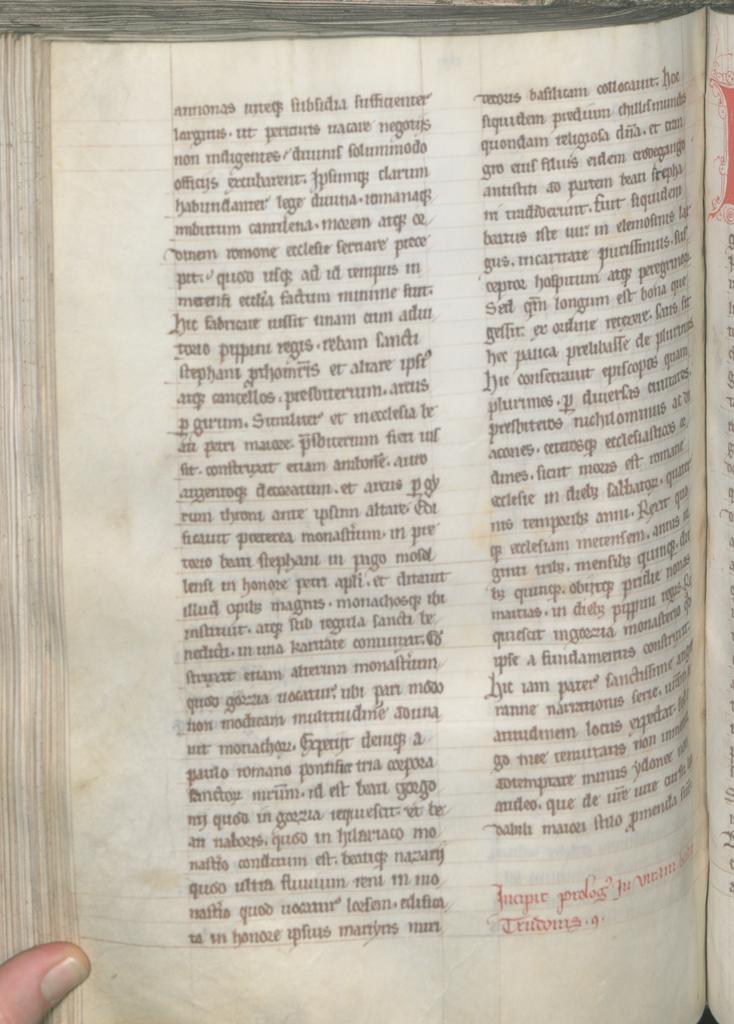 annonas uiteq; subsidia sufficienter
largitus. ut perituris uacare negotijs
non indigentes / diuinis solummodo
officijs excubarent. Ipsumq; clerum
habundanter lege diuina. romanaq;
imbutum cantilena. morem atq; or
dinem romane ecclesie seruare prece
pit. quod usq; ad id tempus in
metensi eccłia factum minime fuit.
Hic fabricare iussit unam cum adiu
torio pippini regis. rebam sancti
stephani prothom̄ris et altare ipsi᷒
atq; cancellos. presbiterium. arcus
ꝑ girum. Similiter et in ecclesia be
ati petri maiore. p̄sbiterium fieri ius
sit. construxit etiam ambonē. auro
argentoq; decoratum. et arcus ꝑ gy
rum throni ante ipsum altare. Edi
ficauit preterea monast̄ium. in pre
torio beati stephani in pago mosel
lensi in honore petri apłi. et ditauit
illud opib; magnis. monachosq; ibi
instituit. atq; sub regula sancti be
nedicti. in una karitate coniunxit. Cō
struxit etiam alterum monast̄ium
quod gorzia uocatur. ubi pari modo
non modicam multitudinē aduna
uit monachoꝝ. Expetijt deniq; a
paulo romano pontifice tria corpora
sanctoꝝ mr̄um. id est beati gorgo
nij quod in gorzia requiescit. et be
ati naboris. quod in hilariaco mo
nast̄io conditum est. beatiq; nazarij
quod ultra fluuium reni in mo
nast̄io quod uocatur lorsem. edifica
ta in honore ipsius martyris miri
basilicam collocauit. Hoc
siquidem predium chillismundis
quondam religiosa dn̄a. et
gro eius filius eidem crodegango
antistiti ad partem beati stepha
ni tradiderunt. Fuit siquidem
beatus iste uir in elemosinis lar
gus. in caritate purissimus. sus
ceptor hospitum atq; peregrinoꝝ
Sed qm̄ longum est bona que
gessit ex ordine texere. satis sit
hec pauca prelibasse de plurimis
Hic consecrauit episcopos quam
plurimos. ꝑ diuersas ciuitates.
presbiteros nichilominus ac di
acones. ceterosq; ecclesiasticos or
dines. sicut moris est romane
ecclesie in dieb; sabbatoꝝ. quater
nis temporib; anni. Rexit quo
q; ecclesiam metensem. annis ui
ginti trib;. mensib; quinq;. die
b; quinq;. obijtq; pridie nonas
martias. in dieb; pippini regis. Re
quiescit in gorzia monasterio quod
ipse a fundamentis construxit.
Hic iam pater sanctissime ange
ranne narrationis serie. ur̄am be
atitudinem locus expectat. Sed e
go mee tenuitatis non inmemor
attemptare minus ydonee non
audeo. que de ur̄e uite cursu lau
dabili maiori stilo ꝓmenda sunt
Incipit prolog᷒ In uitam beati
Trudonis. 9.